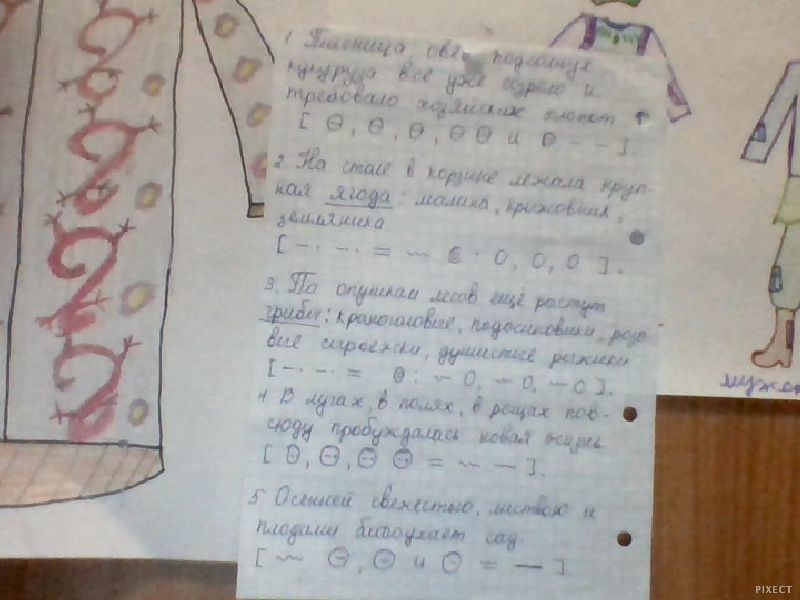 1 Пшеница овёс подсолнух,
кукуруза всё уже созрело и
требовало хозяйских хлопот
[ , , , и - - ].
2. На столе в корзине лежала круп-
ная ягода: малина, крыжовник,
земляника
[ -· -· = : О, О, О ].
3. По опушкам лесов ещё растут
грибы: красноголовые, подосиновики, розо-
вые сыроежки, душистые рыжики
[ -· -· = : ~ О, ~ О, ~ О ].
4 В лугах, в полях, в рощах пов-
сюду пробуждалась новая жизнь
[ , , = ~ — ].
5 Осенней свежестью, листвою и
плодами благоухает сад.
[ ~ , и = — ]
мужс
PIXECT